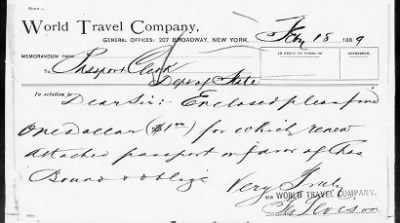 World Travel Company,
GENERAL OFFICES: 207 BROADWAY, NEW YORK, Feby 18 1889
MEMORANDUM
To Passport Clerk
Dept of State
In relation to
Dear Sir:- Enclosed please find
One dollar ($1 00) for which renew
attached passport in favor of
Bound & oblige
Very Truly
WORLD TRAVEL COMPANY.